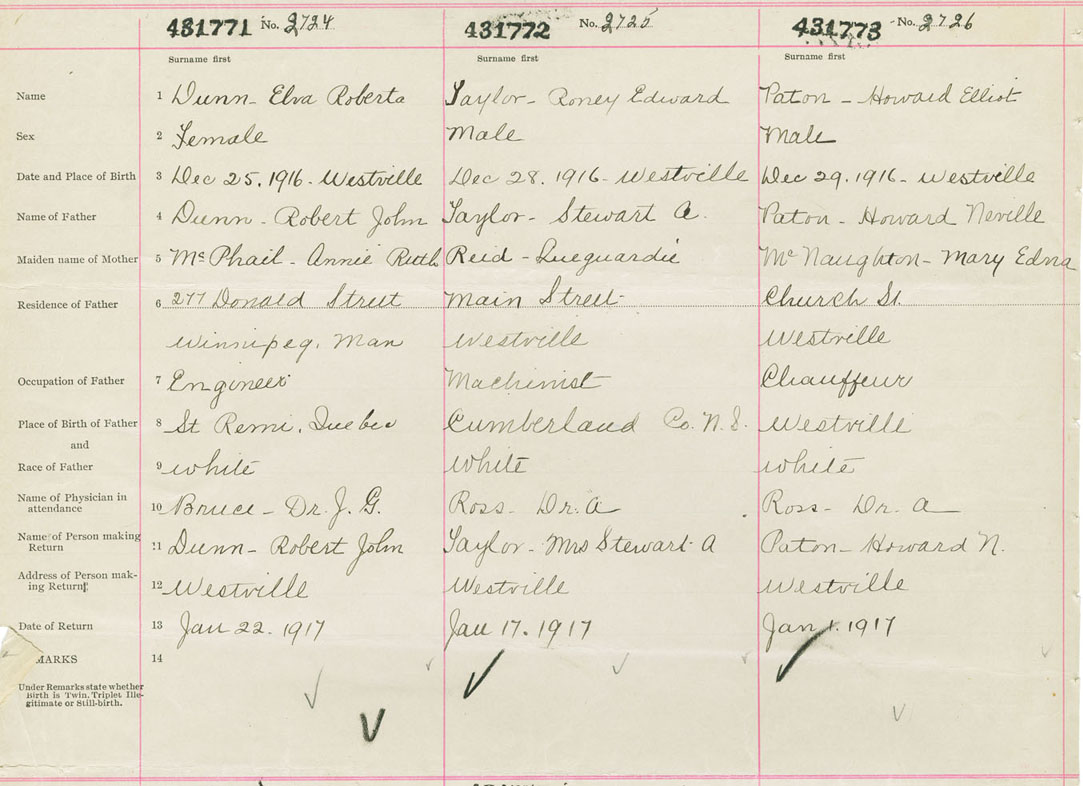 431771 No. 2724 431772 No. 2725 431773 No. 2726
Surname first Surname first Surname first
Name 1 Dunn - Elva Roberta Taylor - Roney Edward Paton - Howard Elliot
Sex 2 Female Male Male
Date and Place of Birth 3 Dec 25. 1916 - Westville Dec 28. 1916 - Westville Dec 29. 1916 - Westville
Name of Father 4 Dunn - Robert John Taylor - Stewart A. Paton - Howard Neville
Maiden name of Mother 5 McPhail - Annie Ruth Reid - McNaughton - Mary Edna
Residence of Father 6 277 Donald Street Main Street Church St.
Winnipeg, Man Westville Westville
Occupation of Father 7 Engineer Machinist Chauffeur
Place of Birth of Father 8 St Remi, Quebec Cumberland Co. N.S. Westville
and
Race of Father 9 white White white
Name of Physician in
attendance 10 Bruce - Dr. J. G. Ross - Dr. A Ross - Dr. A
Name of Person making
Return 11 Dunn - Robert John Taylor - Mrs Stewart A Paton - Howard N.
Address of Person mak-
ing Return 12 Westville Westville Westville
Date of Return 13 Jan 22. 1917 Jan 17. 1917 Jan 1. 1917
MARKS 14
Under Remarks state whether
Birth is Twin, Triplet Ille-
gitimate or Still-birth.